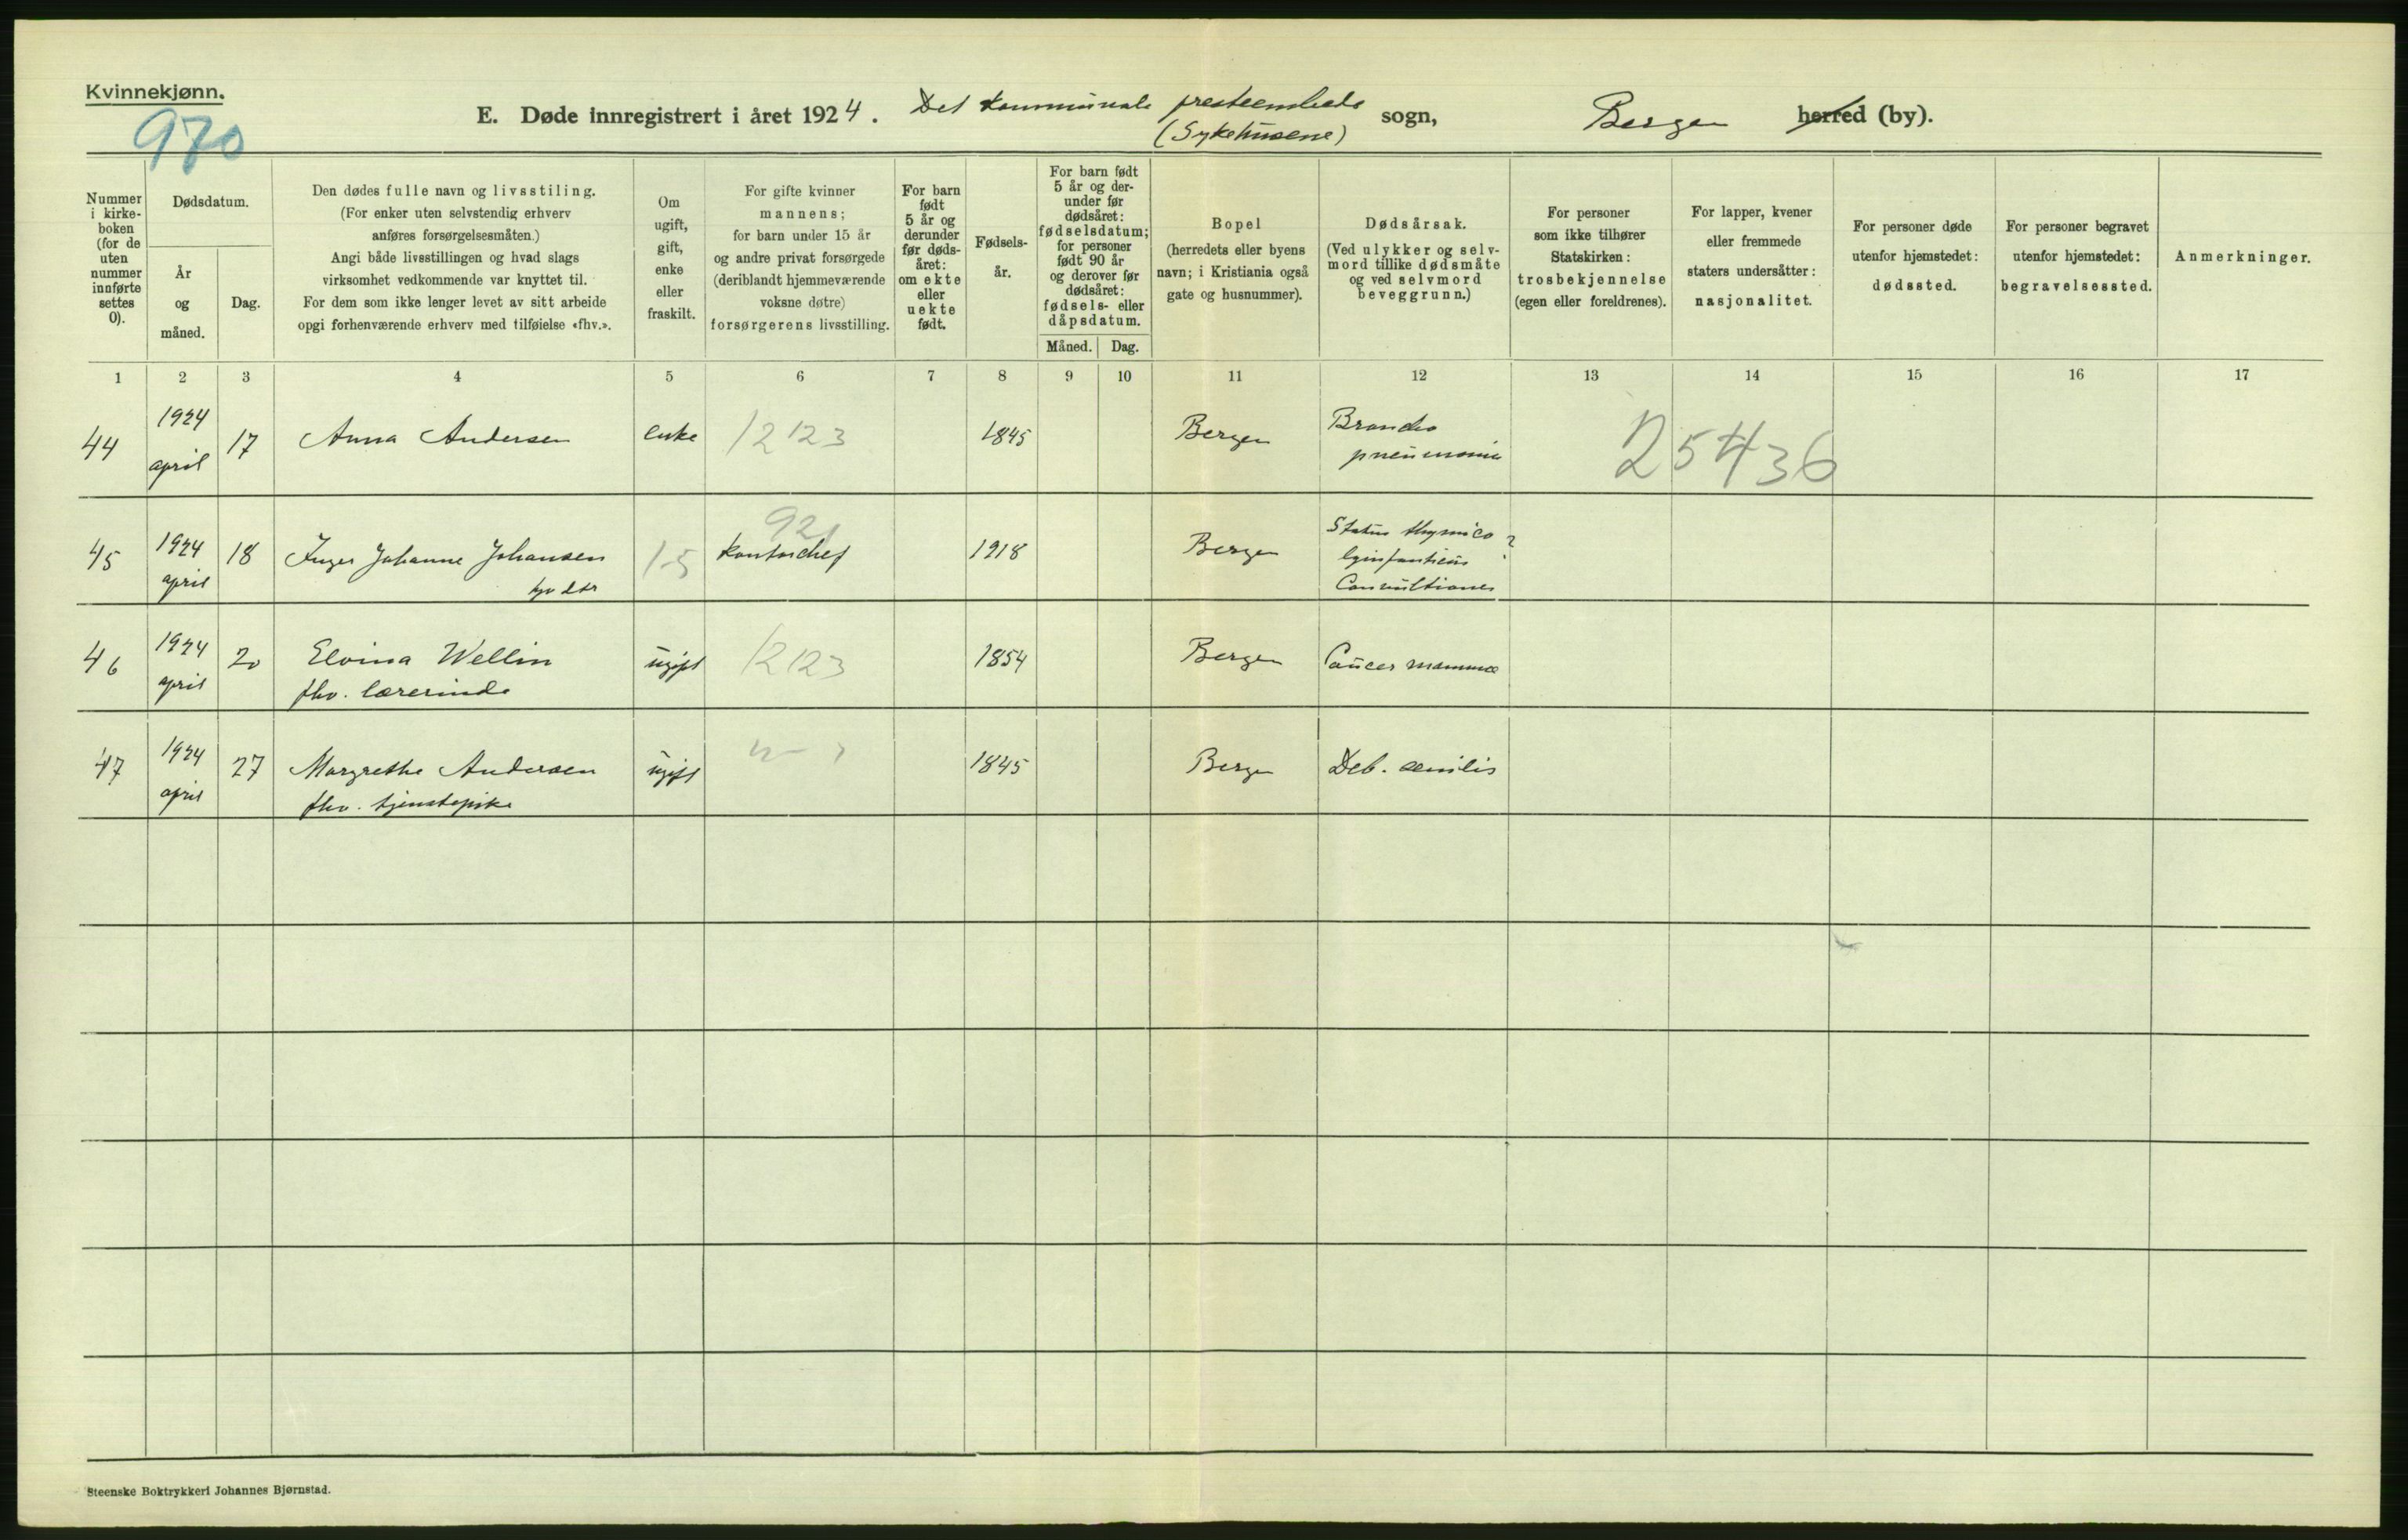 Kvinnekjønn.
970
E. Døde innregistrert i året 1924. Det kommunale presteembede (Sykehusene) sogn, Bergen herred (by).
Nummer i kirke- boken (for de uten nummer innførte settes 0).
Dødsdatum.
År og måned.
Dag.
Den dødes fulle navn og livsstiling.
(For enker uten selvstendig erhverv
anføres forsørgelsesmåten.)
Angi både livsstillingen og hvad slags
virksomhet vedkommende var knyttet til.
For dem som ikke lenger levet av sitt arbeide
opgi forhenværende erhverv med tilføielse «fhv.».
Om ugift, gift, enke eller fraskilt.
For gifte kvinner
mannens;
for barn under 15 år
og andre privat forsørgede
(deriblandt hjemmeværende
voksne døtre)
forsørgerens livsstilling.
For barn født 5 år og derunder før døds- året: om ekte eller uekte født.
Fødsels- år.
For barn født 5 år og der- under før dødsåret: fødselsdatum; for personer født 90 år og derover før dødsåret: fødsels- eller dåpsdatum.
Måned. Dag.
Bopel
(herredets eller byens
navn; i Kristiania også
gate og husnummer).
Dødsårsak.
(Ved ulykker og selv-
mord tillike dødsmåte
og ved selvmord
beveggrunn.)
For personer
som ikke tilhører
Statskirken:
trosbekjennelse
(egen eller foreldrenes).
For lapper, kvener
eller fremmede
staters undersåtter:
nasjonalitet.
For personer døde
utenfor hjemstedet:
dødssted.
For personer begravet
utenfor hjemstedet:
begravelsessted.
Anmerkninger.
1 2 3 4 5 6 7 8 9 10 11 12 13 14 15 16 17
44 1924 april 17 Anna Andersen enke 12123 1845 Bergen Broncho pneumonia 25436
45 1924 april 18 Inger Johanne Johansen 1-5 921 kontorchef 1918 Bergen Status thymico ? Convultiones
46 1924 april 20 Elvina Wellin ugift 12123 1854 Bergen Cancer mammae
fhv. lærerinde
47 1924 april 27 Margrethe Andersen ugift 1845 Bergen Deb. senilis
fhv. tjenestepike
Steenske Boktrykkeri Johannes Bjørnstad.